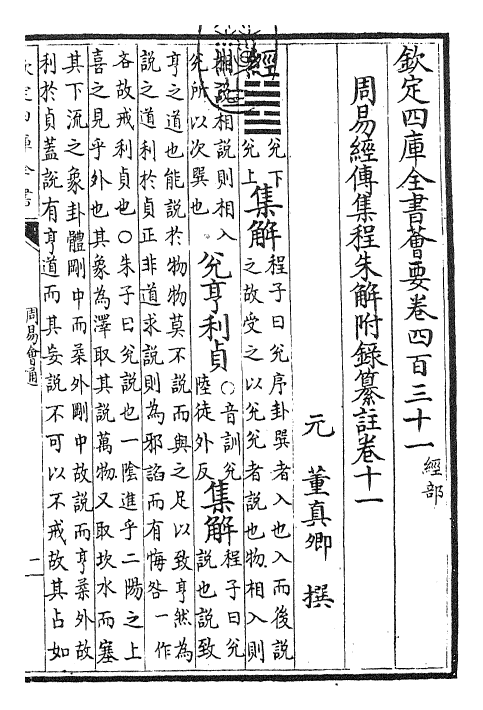 欽定四庫全書薈要卷四百三十一 經部
周易經傳集程朱解附錄纂註卷十一
元 董真卿 撰
經 ䷹ 兌下
兌上
集解 程子曰兌序卦巽者入也入而後說
之故受之以兌兌者說也物相入則
相說相說則相入
兌所以次巽也
兌亨利貞 ○音訓兌
陸徒外反
集解 程子曰兌
說也說致
亨之道也能說於物物莫不說而與之足以致亨然為
說之道利於貞正非道求說則為邪諂而有悔咎一作
吝故戒利貞也○朱子曰兌說也一陰進乎二陽之上
喜之見乎外也其象為澤取其說萬物又取坎水而塞
其下流之象卦體剛中而柔外剛中故說而亨柔外故
利於貞蓋說有亨道而其妄說不可以不戒故其占如
欽定四庫全書
周易會通